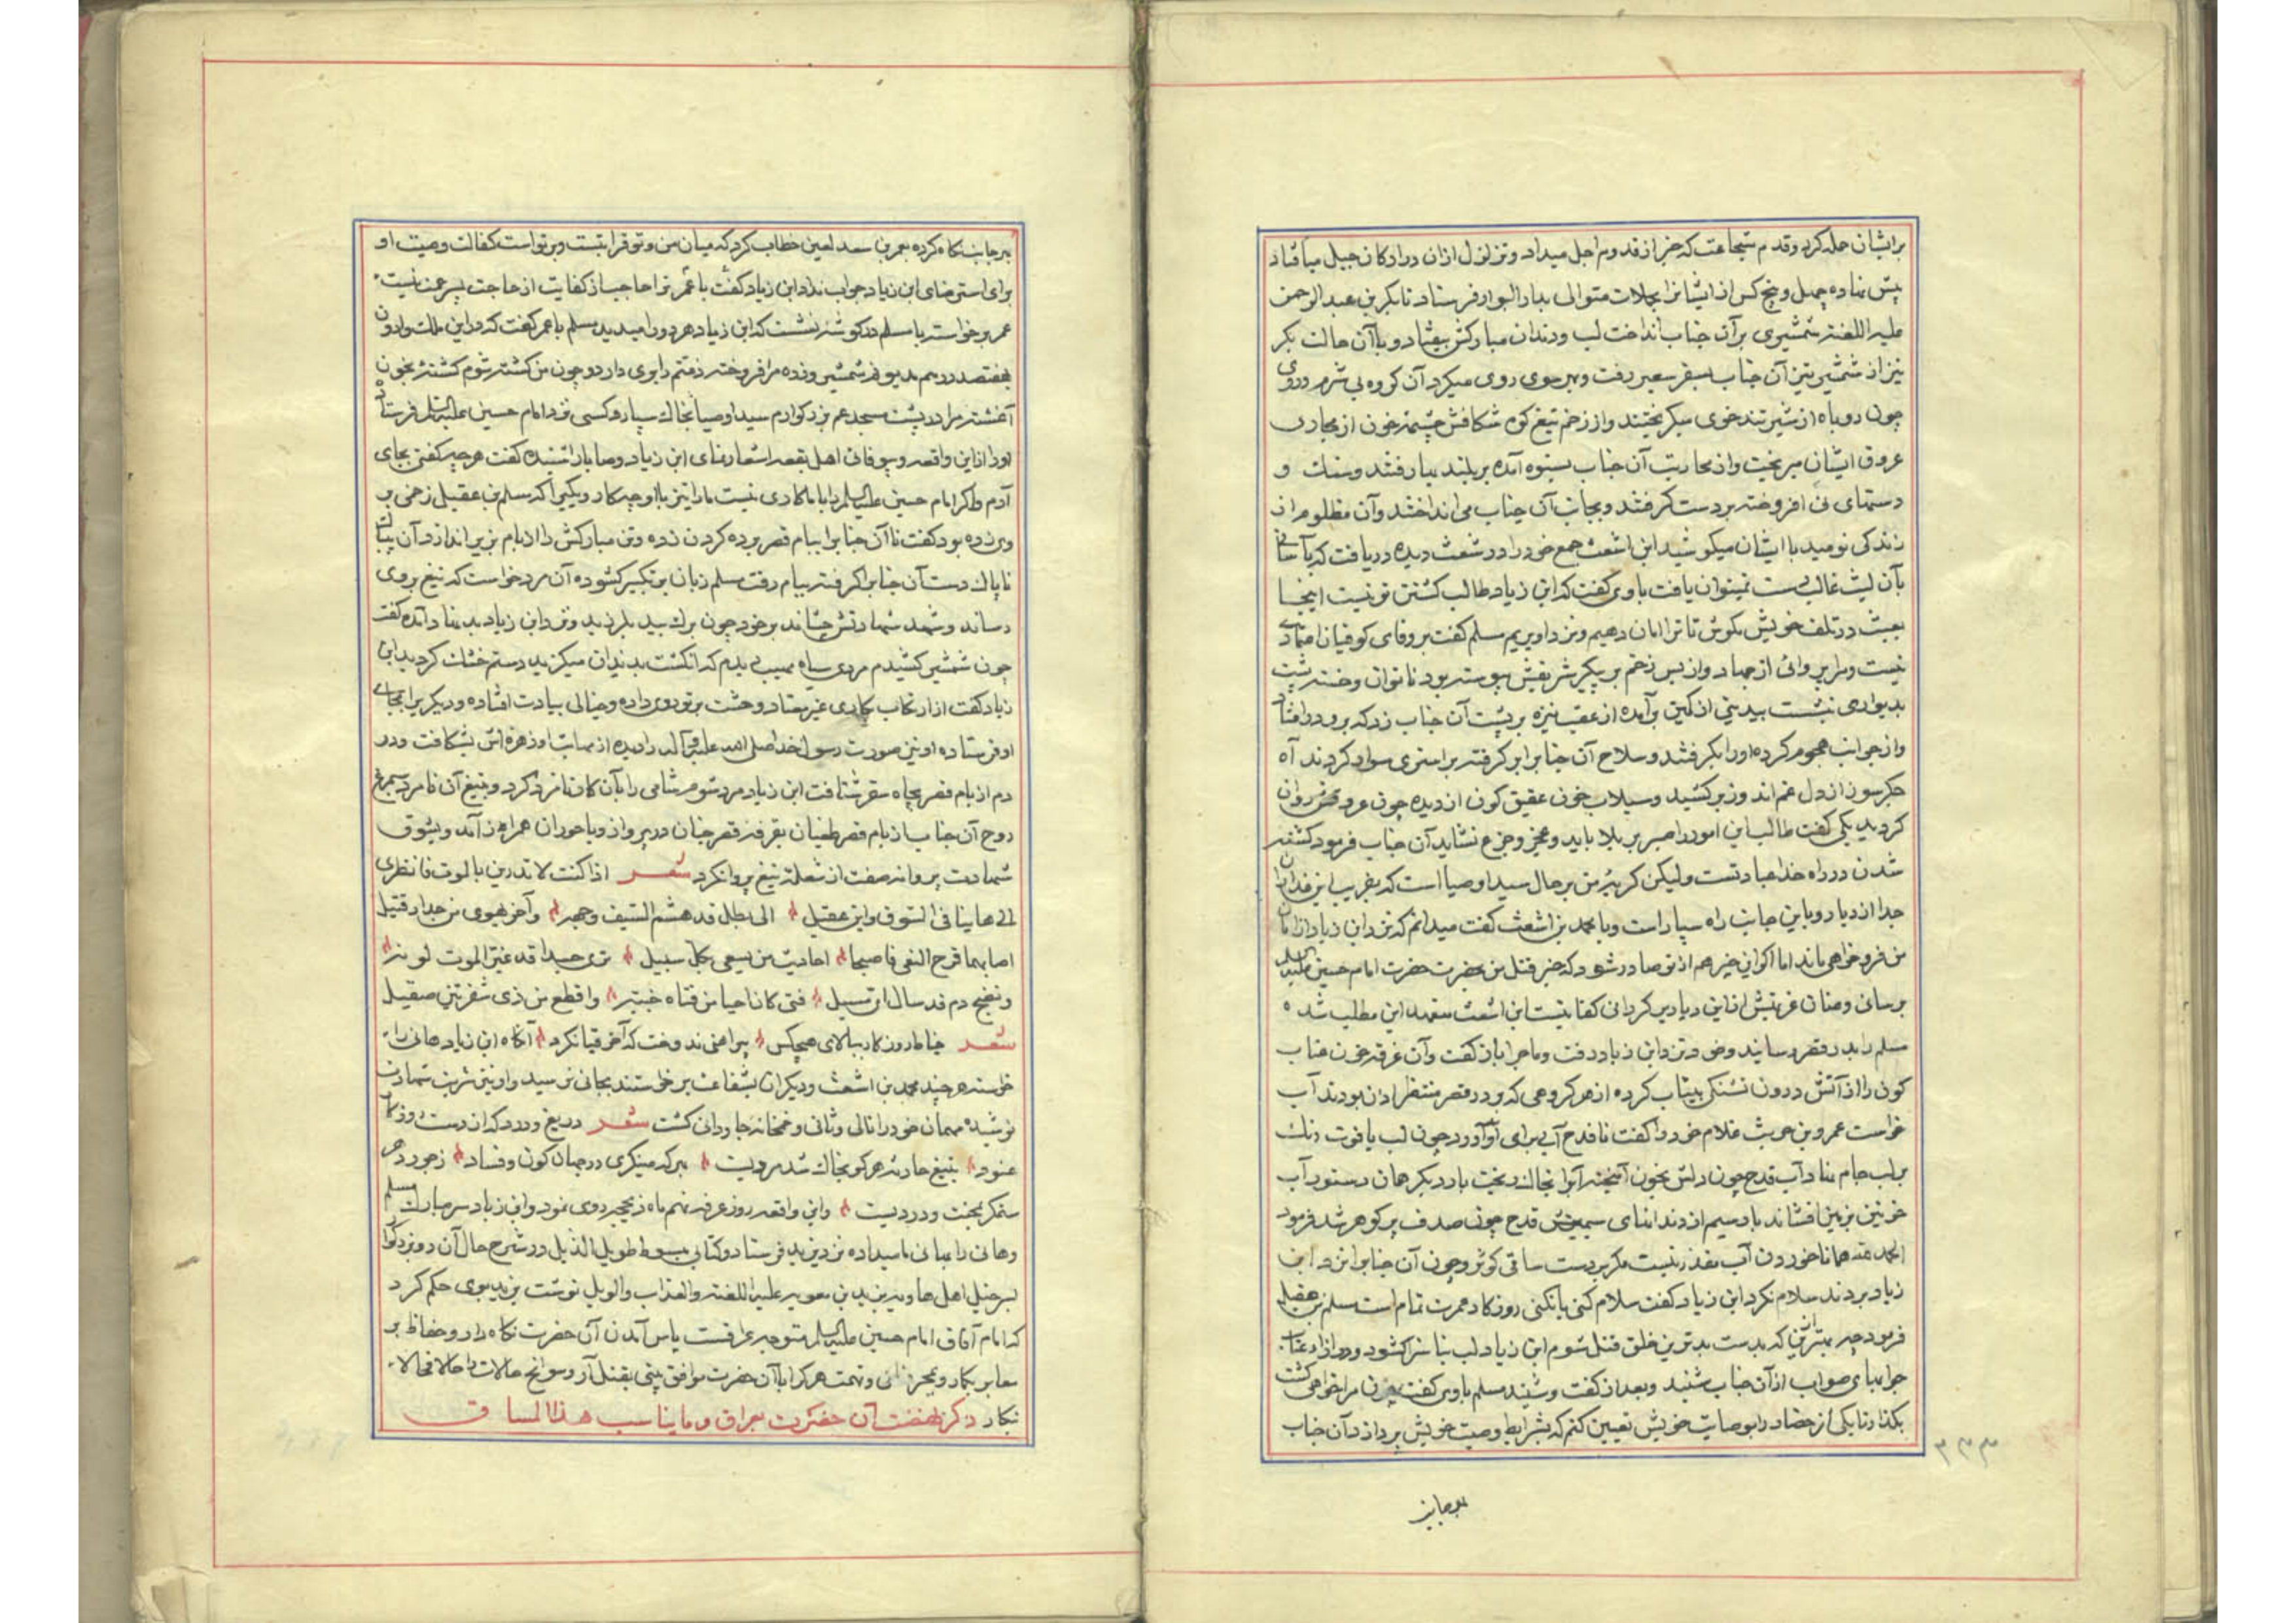 برایشان حمله کرد و قدم شجاعت که خبر از قدوم اجل میداد و تزلزل ازان در ارکان جبل میافتاد
پیش نهاده چهل و پنج کس از ایشانرا بحملات متوالی بدار البوار فرستاد تا بکر بن عبد الرحمن
علیه اللعنه شمشیری برآن جناب انداخت لب و دندان مبارکش بیفتاد و با آن حالت بکر
نیز از شمشیر تیز آن جناب بسقر سعیر رفت و بهر سوی روی میکرد آن کروه بی شرم و روی
چون روباه از شیر تند خوی میکریختند و از زخم تیغ کوه شکافش چشمه خون از مجاری
عروق ایشان میریخت و از محاربت آن جناب بستوه آمده بر بلندیها رفتند و سنک و
دستهای نی افروخته بر دست کرفتند و بجانب آن جناب می انداختند و آن مظلوم از
زندکی نومید با ایشان میکوشید ابن اشعث جمع خود را در شعث دیده دریافت که بآسانی
بآن لیث غالب دست نمیتوان یافت با وی کفت که ابن زیاد طالب کشتن تو نیست اینجا
بعبث در تلف خویش مکوش تا ترا امان دهیم و نزد او بریم مسلم کفت بر وفای کوفیان اعتمادی
نیست و مرا پروائی از جهاد و از بس زخم بر پیکر شریفش پیوسته بود ناتوان و خسته پشت
بدیواری نشست بیدینی از کمین برآمده از عقب نیزه بر پشت آن جناب زد که برو در افتاد
و از جوانب هجوم کرده اورا بکرفتند و سلاح آن جناب را بر کرفته بر استری سوار کردند آه
جکر سوز از دل غم اندوز برکشید و سیلاب خون عقیق کون از دیده چون عروض روان
کردید یکی کفت طالب این امور را صبر بر بلا باید و عجز و جزع نشاید آن جناب فرمود کشته
شدن در راه خدا عبادتست ولیکن کریه من بر حال سید اوصیا است که بفریب این غداران
جدا از دیار و باین جانب راه سپار است و با محمد بن اشعث کفت میدانم که نزد ابن زیاد از امان
من فرو خواهی ماند اما اکر این خیر هم از تو صادر شود که خبر قتل من بحضرت حضرت امام حسین علیه السلام
برسانی و عنان عزیمتش از این دیار برکردانی کفایتیست ابن اشعث متعهد این مطلب شده
مسلم را بدر قصر رسانید و خود نزد ابن زیاد رفت و ماجرا باز کفت و آن غرقه خون عناب
کون را از آتش درون تشنکی بیتاب کرده از هر کروهی که بر در قصر منتظر اذن بودند آب
خواست عمرو بن حریث غلام خود را کفت تا قدح آبی برای او آورد چون لب یاقوت رنک
بر لب جام نهاد آب قدح چون دلش بخون آمیخته آنرا بخاک ریخت بار دیکر همان دستور آب
خونین بزمین افشاند بار سیم از دندانهای سیمینش قدح چون صدف پر کوهر شد فرمود
الحمد لله همانا خوردن آب مقدر نیست مکر بدست ساقی کوثر و چون آن جناب را نزد ابن
زیاد بردند سلام نکرد ابن زیاد کفت سلام کنی یا نکنی روزکار عمرت تمام است مسلم بن عقیل
فرمود چه بهتر ازین که بدست بدترین خلق قتل شوم ابن زیاد لب بناسزا کشود و در ازاء عتاب
جوابهای صواب از آن جناب شنید و بعد از کفت و شنید مسلم با وی کفت چون مرا خواهی کشت
بکذار تا یکی از حضار را بوصایت خویش تعیین کنم که بشرایط وصیت خویش پردازد آن جناب
بهر جانب
۳۳۳
بهر جانب نکاه کرده بعمر بن سعد لعین خطاب کرد که میان من و تو قرابتست و بر تو است کفالت وصیت او
برای استرضای ابن زیاد جواب نداد ابن زیاد کفت یا عمر ترا حاجب از کفایت از حاجت پسر عمت نیست
عمر برخواسته با مسلم در کوشه نشست که ابن زیاد هر دو را میدید مسلم با عمر کفت که در این ملت وارون
بهفتصد درهم مدیونم شمشیر و زره مرا فروخته ذمتم را بری دار دوم چون من کشته شوم کشته بخون
آغشته مرا در پشت مسجد عم بزرکوارم سید اوصیا بخاک سپار و کسی نزد امام حسین علیه السلام فرستاده
اورا از این واقعه و بیوفائی اهل بقعه اشعار نمای ابن زیاد وصایا را شنیده کفت هر چه کفتی بجای
آدم و اکر امام حسین علیه السلام را با ما کاری نیست ما را نیز با او چه کار و بکیرا که مسلم بن عقیل زخمی بر
وی زده بود کفت تا آن جنابرا ببام قصر برده کردن زده و تن مبارکش را از بام بزیر اندازد آن بیباک
ناپاک دست آن جنابرا کرفته ببام رفت مسلم زبان بتکبیر کشوده آن مرد خواست که تیغ بر وی
رساند و شهد شهادتش چشاند بر خود چون برک بید بلرزید و نزد ابن زیاد بدنهاد آمده کفت
چون شمشیر کشیدم مردی سیاه مهیب دیدم که انکشت بدندان میکزید دستم خشک کردید ابن
زیاد کفت از ارتکاب بکاری غیر معتاد وحشت بر تو روی داده و خیالی بیادت افتاده و دیکریرا بجای
او فرستاده او نیز صورت رسول خدا صلی الله علیه و آله را دیده از مهابت او زهره اش بشکافت و در
دم از بام قصر بچاه سقر شتافت ابن زیاد مرد شوم شامی را بآن کار نامزد کرد و بتیغ آن نامرد مرغ
روح آن جناب از بام قصر طغیان بغرفه قصر جنان در پرواز و با حوران همراز آمد و بشوق
شهادت پروانه صفت از شعله تیغ پروا نکرد شعر اذا کنت لا تدرین بالموت فانظری
الی هانینا فی السوق و ابن عقیل الی بطل قد هشم السیف وجهه و آخر یهوی من جدار قتیل
اصابهما فرخ البغی فاصبحا احادیث من یسعی بکل سبیل تری جسدا قد غیر الموت لونه
و نضح دم قد سال ای مسیل فتی کان احیا من فتاة خبیة و اقطع من ذی شفرتین صقیل
شعر خیاط روزکار ببالای هیچکس پیراهنی ندوخت که آخر قبا نکرد آنکاه ابن زیاد هانی را
خواسته هر چند محمد بن اشعث و دیکران بشفاعت برخواستند بجائی نرسید و او نیز شربت شهادت
نوشیده مهمان خود را تالی و ثانی و همخانه جاودانی کشت شعر دریغ و درد که از دست روزکار
عنود بتیغ حادثه هر کو بخاک شد مردیست بهر که مینکری در جهان کون و فساد ز جور دهر
ستمکر بمحنت و دردیست و این واقعه روز عرفه نهم ماه ذیحجه روی نمود و ابن زیاد سر مبارک مسلم
و هانی را بهانی ناسیداده نزد یزید فرستاد و کتابی مبسوط طویل الذیل در شرح حال آن دو بزرکوار
بسرخیل اهل هاویه یزید بن معویه علیه اللعنه والعذاب والویل نوشت یزید بوی حکم کرد
که امام آفاق امام حسین علیه السلام متوجه عراقست پاس آمدن آن حضرت نکاه دار و حفاظ بر
معابر بکمار و بمجرد ظن و تهمت هر کرا با آن حضرت موافق بینی بقتل آر و سوانح حالات را حالا فحالا
نکار ذکر نهضت آن حضرت بعراق و ما یناسب هذا المساق